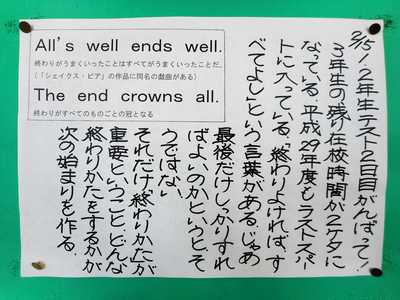 All's well ends well.
終わりがうまくいったことはすべてがうまくいったことだ。
(「シェイクス・ピア」の作品に同名の戯曲がある)
The end crowns all.
終わりがすべてのものごとの冠となる
2/15 1.2年生テスト2日目がんばって!
3年生の残り在校時間が2ケタに
なっている。平成29年度もラストスパ
ートに入っている。「終わりよければ、す
べてよし」という言葉がある。じゃあ
最後だけしっかりすれ
ばよいのかというと、そ
うではない。
それだけ、終わりかたが
重要ということ。どんな
終わりかたをするかが
次の始まりを作る。